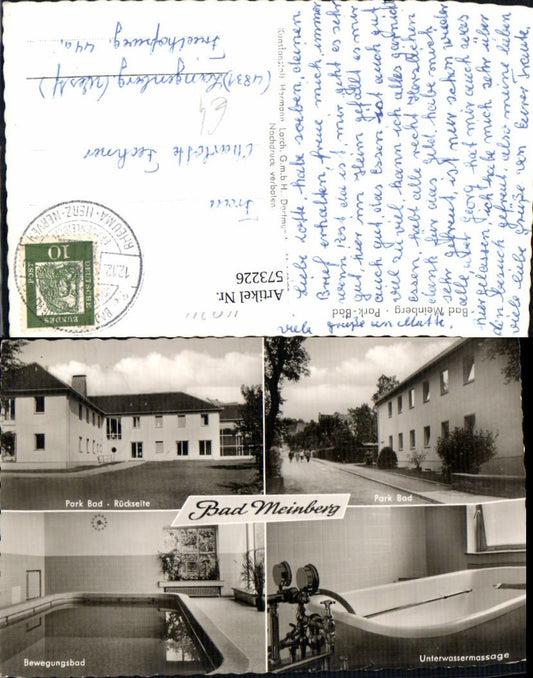 Liebe Lotte, habe soeben deinen
Brief erhalten, freue mich immer
wenn Post da ist, mir geht es sehr
gut, hier im Heim gefällt es mir
auch gut, das Essen ist auch gut
viel zu viel, kann ich alles garnicht
essen, habt alle recht Herzlichen
Dank für das Geld, habe mich
sehr gefreut, ist nur schon wieder
alle, der Georg hat mir auch was
hiergelassen, ich habe mich sehr über
den Besuch gefreut, also meine lieben
viele liebe Grüße von Eurer Traute,
viele Grüße an
Bad Meinberg - Park-Bad
Kunstanstalt Hermann Lorch, G.m.b.H., Dortmund
Nachdruck verboten
Frau
Charlotte Lechner
(4831) Langenberg (Westf)
44a
RHEUMA-HERZ-NERVEN
10
DEUTSCHE
BUNDES
POST
Artikel Nr.
573226
Park Bad - Rückseite
Park Bad
Bad Meinberg
Bewegungsbad
Unterwassermassage